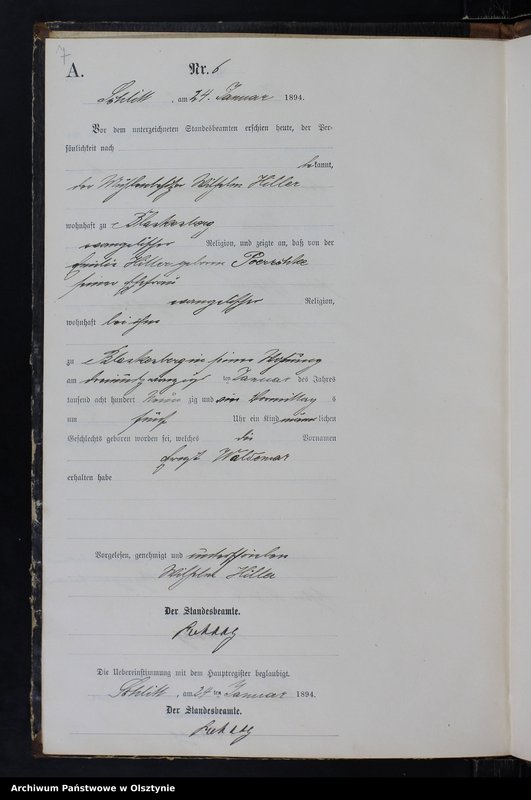 7
A.
Nr. 6
Schlitt, am 24. Januar 1894.
Vor dem unterzeichneten Standesbeamten erschien heute, der Per-
sönlichkeit nach
bekannt,
der Mühlenbesitzer Wilhelm Heller
wohnhaft zu Blankenberg
evangelischer Religion, und zeigte an, daß von der
Heller geborene
seiner Ehefrau
evangelischer Religion,
wohnhaft bei ihm
zu Blankenberg in seiner Wohnung
am dreiundzwanzig ten Januar des Jahres
tausend acht hundert neun zig und vier Vormittag s
um fünf Uhr ein Kind männlichen
Geschlechts geboren worden sei, welches die Vornamen
Ernst Waldemar
erhalten habe
Vorgelesen, genehmigt und unterschrieben
Wilhelm Heller
Der Standesbeamte.
Die Uebereinstimmung mit dem Hauptregister beglaubigt.
Schlitt, am 24 ten Januar 1894.
Der Standesbeamte.
Archiwum Państwowe w Olsztynie